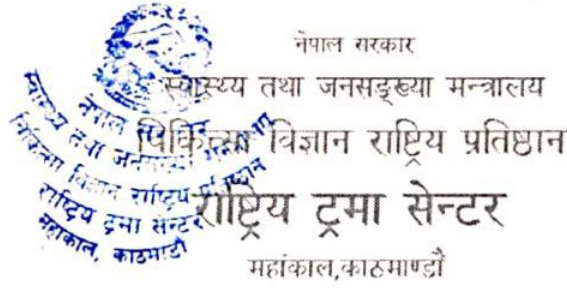 नेपाल सरकार
स्वास्थ्य तथा जनसङ्ख्या मन्त्रालय
चिकित्सा विज्ञान राष्ट्रिय प्रतिष्ठान
राष्ट्रिय ट्रमा सेन्टर
महांकाल,काठमाण्डौं
नेपाल सरकार
स्वास्थ्य तथा जनसङ्ख्या मन्त्रालय
चिकित्सा विज्ञान राष्ट्रिय प्रतिष्ठान
राष्ट्रिय ट्रमा सेन्टर
महाकाल, काठमाडौं